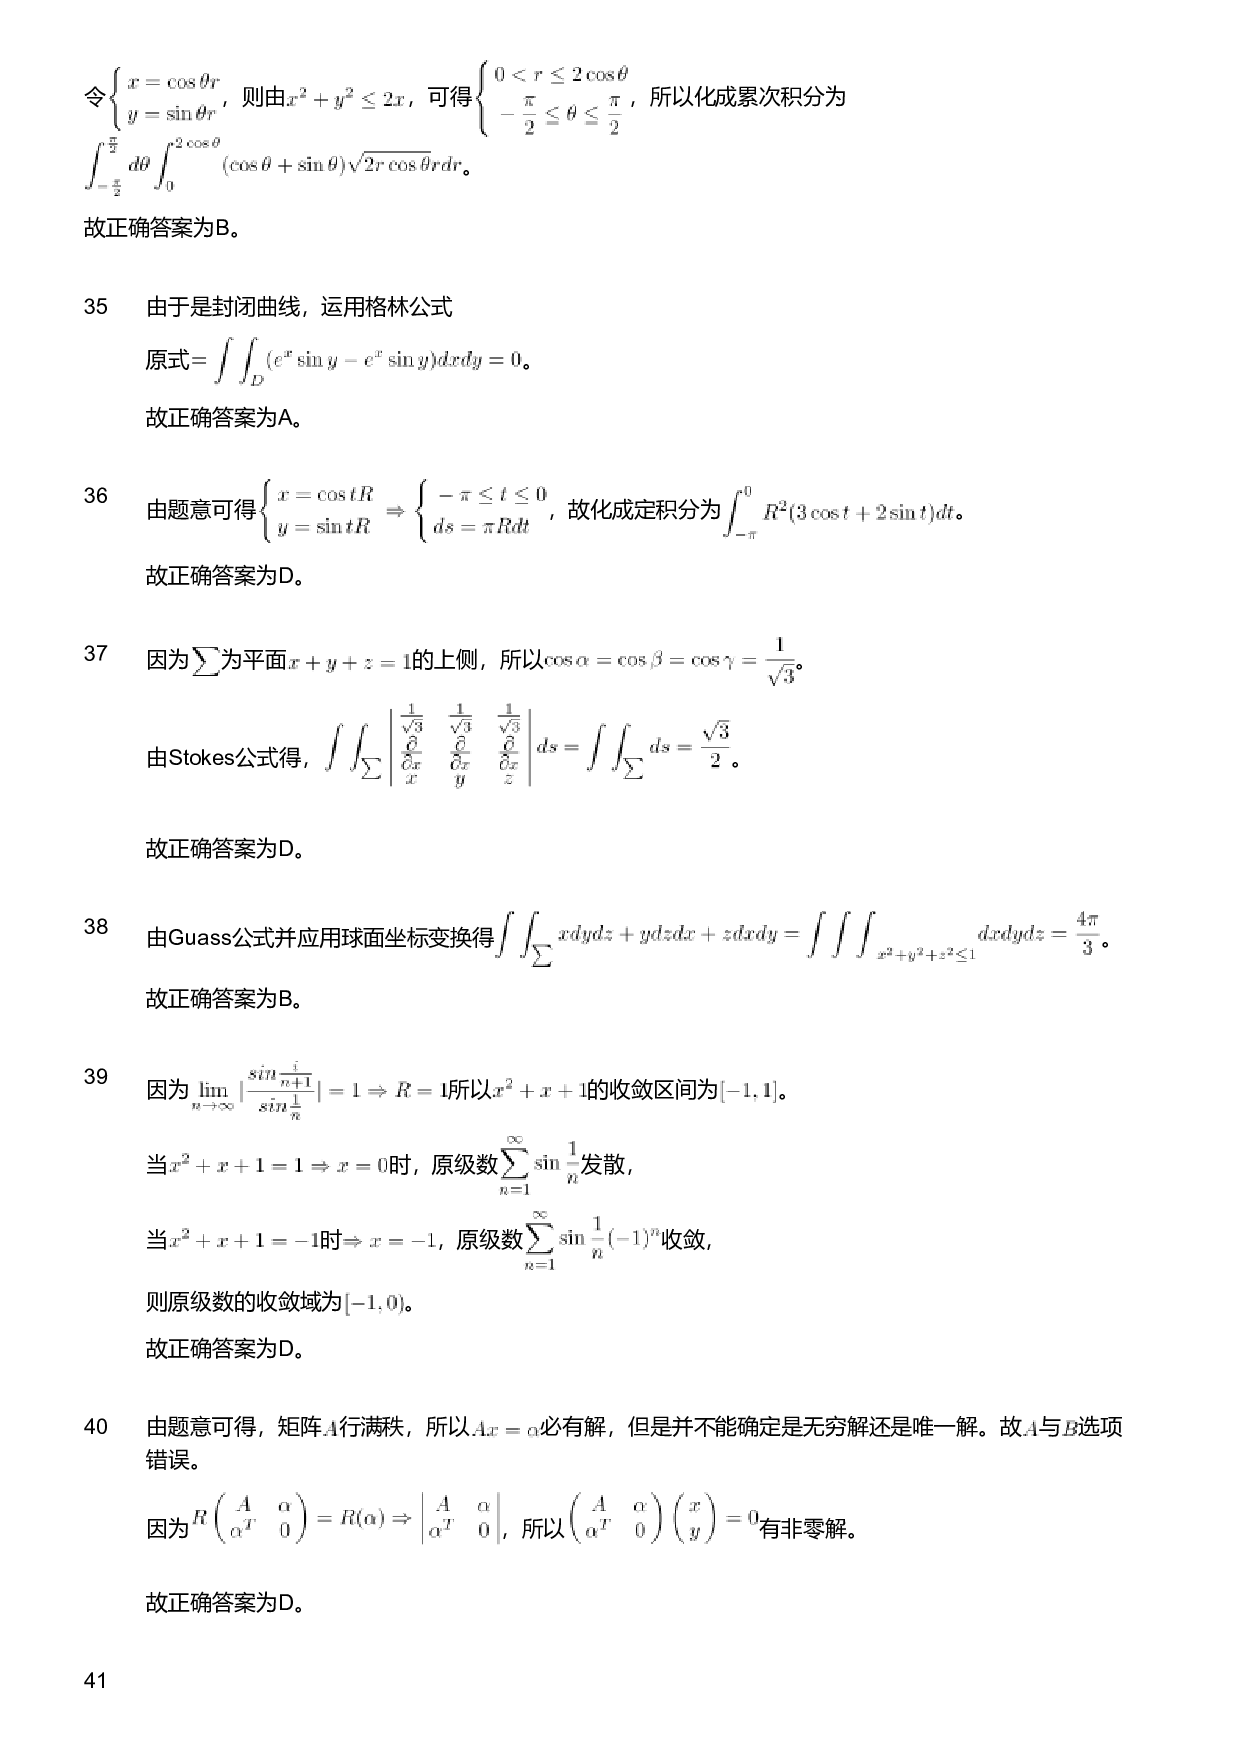 令$\begin{cases} x = \cos\theta r \\ y = \sin\theta r \end{cases}$，则由$x^2 + y^2 \leq 2x$，可得$\begin{cases} 0 < r \leq 2\cos\theta \\ -\frac{\pi}{2} \leq \theta \leq \frac{\pi}{2} \end{cases}$，所以化成累次积分为
$\int_{-\frac{\pi}{2}}^{\frac{\pi}{2}} d\theta \int_0^{2\cos\theta} (\cos\theta + \sin\theta)\sqrt{2r\cos\theta} rdr$。
故正确答案为B。
35 由于是封闭曲线，运用格林公式
原式$= \int\int_D (e^x \sin y - e^x \sin y)dxdy = 0$。
故正确答案为A。
36 由题意可得$\begin{cases} x = \cos tR \\ y = \sin tR \end{cases} \Rightarrow \begin{cases} -\pi \leq t \leq 0 \\ ds = \pi Rdt \end{cases}$，故化成定积分为$\int_{-\pi}^0 R^2(3\cos t + 2\sin t)dt$。
故正确答案为D。
37 因为$\sum$为平面$x + y + z = 1$的上侧，所以$\cos\alpha = \cos\beta = \cos\gamma = \frac{1}{\sqrt{3}}$。
由Stokes公式得，$\int\int_{\sum} \begin{vmatrix} \frac{1}{\sqrt{3}} & \frac{1}{\sqrt{3}} & \frac{1}{\sqrt{3}} \\ \frac{\partial}{\partial x} & \frac{\partial}{\partial x} & \frac{\partial}{\partial x} \\ x & y & z \end{vmatrix} ds = \int\int_{\sum} ds = \frac{\sqrt{3}}{2}$。
故正确答案为D。
38 由Guass公式并应用球面坐标变换得$\int\int_{\sum} xdydz + ydzdx + zdxdy = \int\int\int_{x^2+y^2+z^2\leq 1} dxdydz = \frac{4\pi}{3}$。
故正确答案为B。
39 因为$\lim_{n\to\infty} |\frac{sin\frac{i}{n+1}}{sin\frac{1}{n}}| = 1 \Rightarrow R = 1$所以$x^2 + x + 1$的收敛区间为$[-1, 1]$。
当$x^2 + x + 1 = 1 \Rightarrow x = 0$时，原级数$\sum_{n=1}^{\infty} \sin\frac{1}{n}$发散，
当$x^2 + x + 1 = -1$时$\Rightarrow x = -1$，原级数$\sum_{n=1}^{\infty} \sin\frac{1}{n}(-1)^n$收敛，
则原级数的收敛域为$[-1, 0)$。
故正确答案为D。
40 由题意可得，矩阵$A$行满秩，所以$Ax = \alpha$必有解，但是并不能确定是无穷解还是唯一解。故$A$与$B$选项
错误。
因为$R\begin{pmatrix} A & \alpha \\ \alpha^T & 0 \end{pmatrix} = R(\alpha) \Rightarrow \begin{vmatrix} A & \alpha \\ \alpha^T & 0 \end{vmatrix}$，所以$\begin{pmatrix} A & \alpha \\ \alpha^T & 0 \end{pmatrix}\begin{pmatrix} x \\ y \end{pmatrix} = 0$有非零解。
故正确答案为D。
41